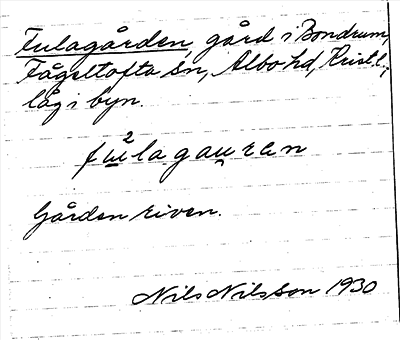 Fulagården, gård i Bondrum,
Fågeltofta sn, Albo hd, Krist. l.,
låg i byn.
Gården riven.
Nils Nilsson 1930